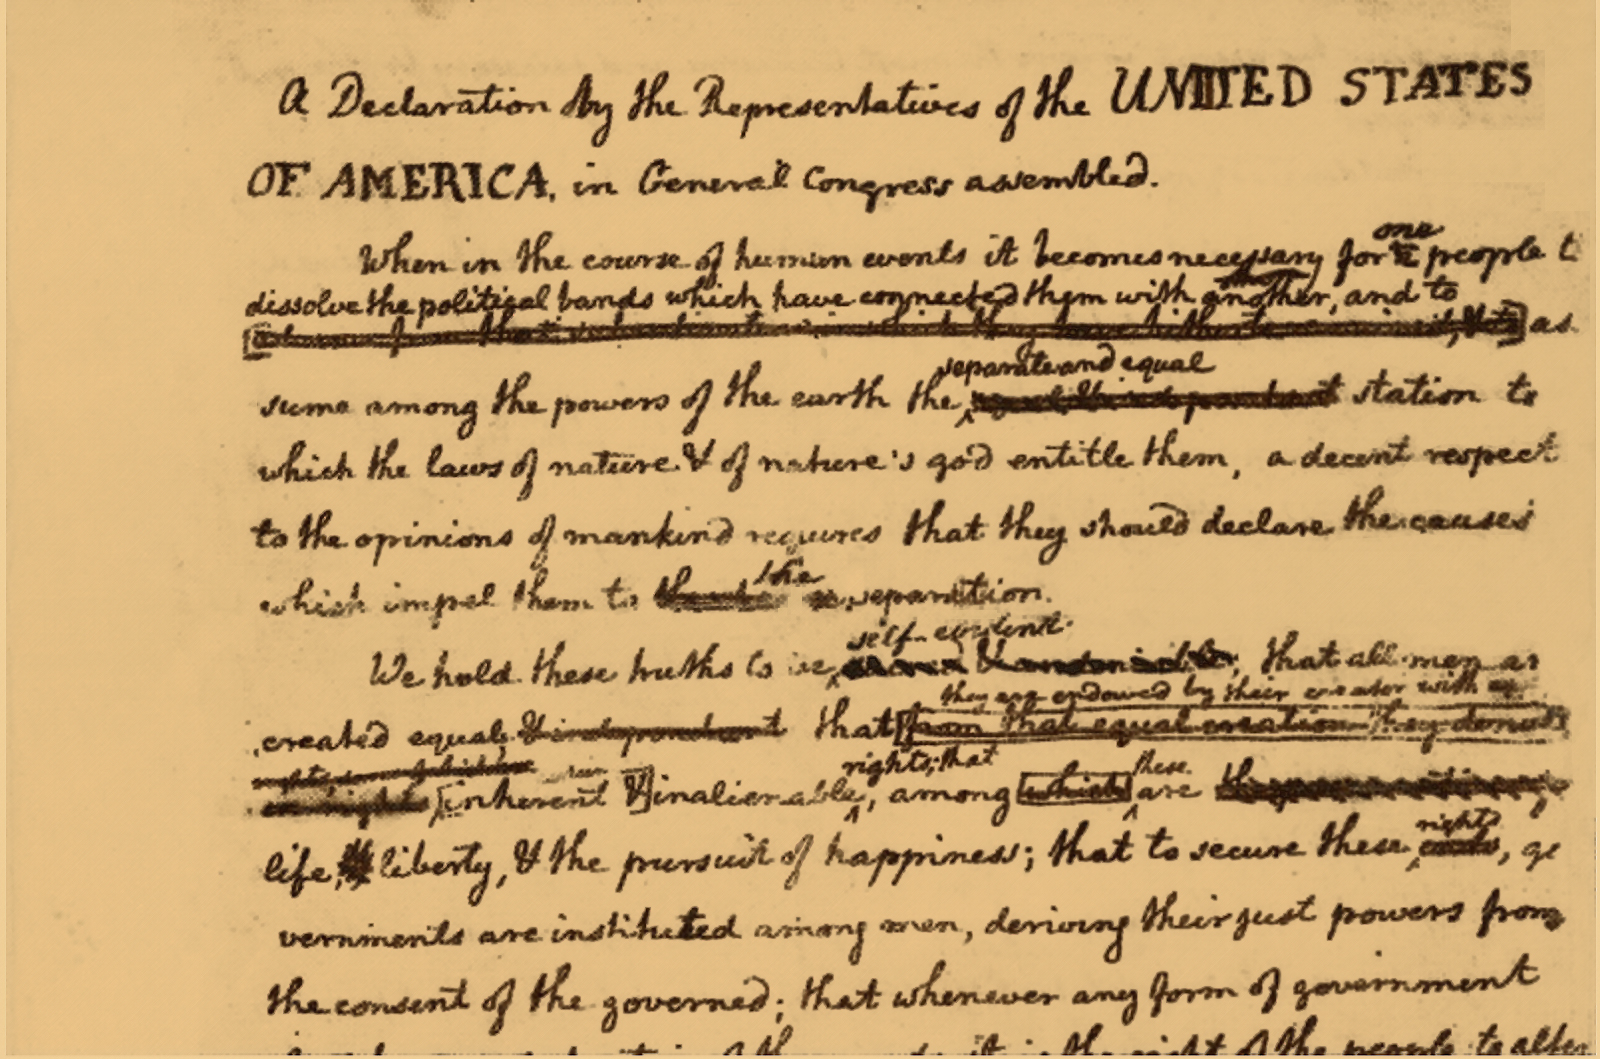 A Declaration by the Representatives of the UNITED STATES
OF AMERICA, in General Congress assembled.
one
When in the course of human events it becomes necessary for people t
dissolve the political bands which have connected them with another, and to
as
separate and equal
sume among the powers of the earth the station to
which the laws of nature & of nature's god entitle them, a decent respect
to the opinions of mankind requires that they should declare the causes
the
which impel them to separation.
self-evident
We hold these truths to be, that all men ar
they are endowed by their creator with
created equal & independent that [from that equal creation they
rights; that
[inherent &] inalienable, among [which] these are
rights
life, liberty, & the pursuit of happiness; that to secure these ends, go
vernments are instituted among men, deriving their just powers from
the consent of the governed; that whenever any form of government
it is the right of the people to alter